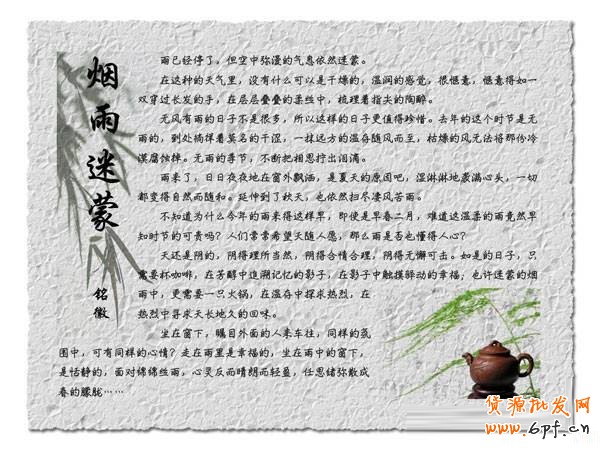 烟雨迷蒙
铭徽
雨已经停了，但空中弥漫的气息依然迷蒙。
在这种的天气里，没有什么可以是干燥的，温润的感觉，很惬意，惬意得如一
双穿过长发的手，在层层叠叠的柔丝中，梳理着指尖的陶醉。
无风有雨的日子不是很多，所以这样的日子更值得珍惜。去年的这个时节是无
雨的，到处捎伴着莫名的干涩，一抹远方的温存随风而至，枯燥的风无法将那份冷
漠腐蚀掉。无雨的季节，不断把相思拧出泪滴。
雨来了，日日夜夜地在窗外飘洒，是夏天的原因吧，湿淋淋地裹满心头，一切
都变得自然而随和。延伸到了秋天，也依然扫尽凄风苦雨。
不知道为什么今年的雨来得这样早，即使是早春二月，难道这温柔的雨竟然早
知时节的可贵吗？人们常常希望天随人愿，那么雨是否也懂得人心？
天还是阴的，阴得理所当然，阴得合情合理，阴得无懈可击。如是的日子，只
需要杯咖啡，在芳醇中追溯记忆的影子，在影子中触摸骚动的幸福，也许迷蒙的烟
雨中，更需要一只火锅，在温存中探求热烈，在
热烈中寻求天长地久的回味。
坐在窗下，瞩目外面的人来车往，同样的氛
围中，可有同样的心情？走在雨里是幸福的，坐在雨中的窗下，
是恬静的，面对绵绵丝雨，心灵反而晴朗而轻盈，任思绪弥散成
春的朦胧……
货源批发网
www.6pf.cn